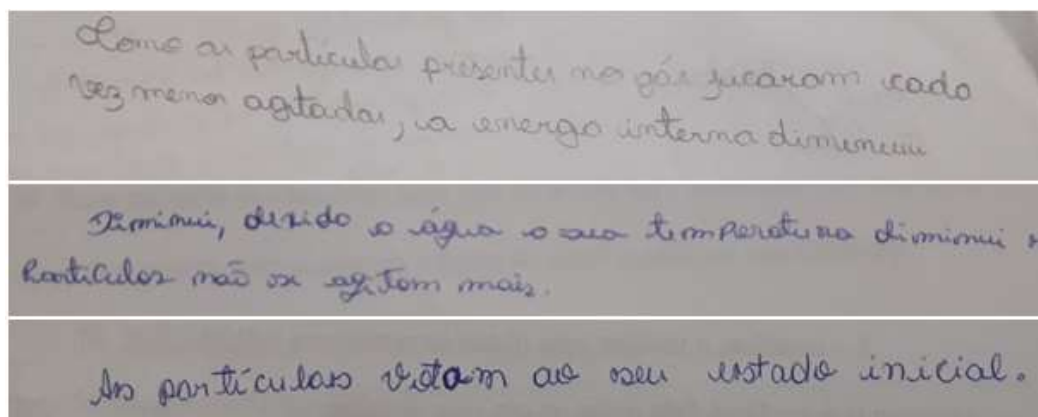 Como as particulas presentes no gás ficaram cada
vez menos agitadas, a energa interna diminuiu
Diminui, devido a água a sua temperatura diminui
Particulas não se agitam mais.
As partículas votam ao seu estado inicial.